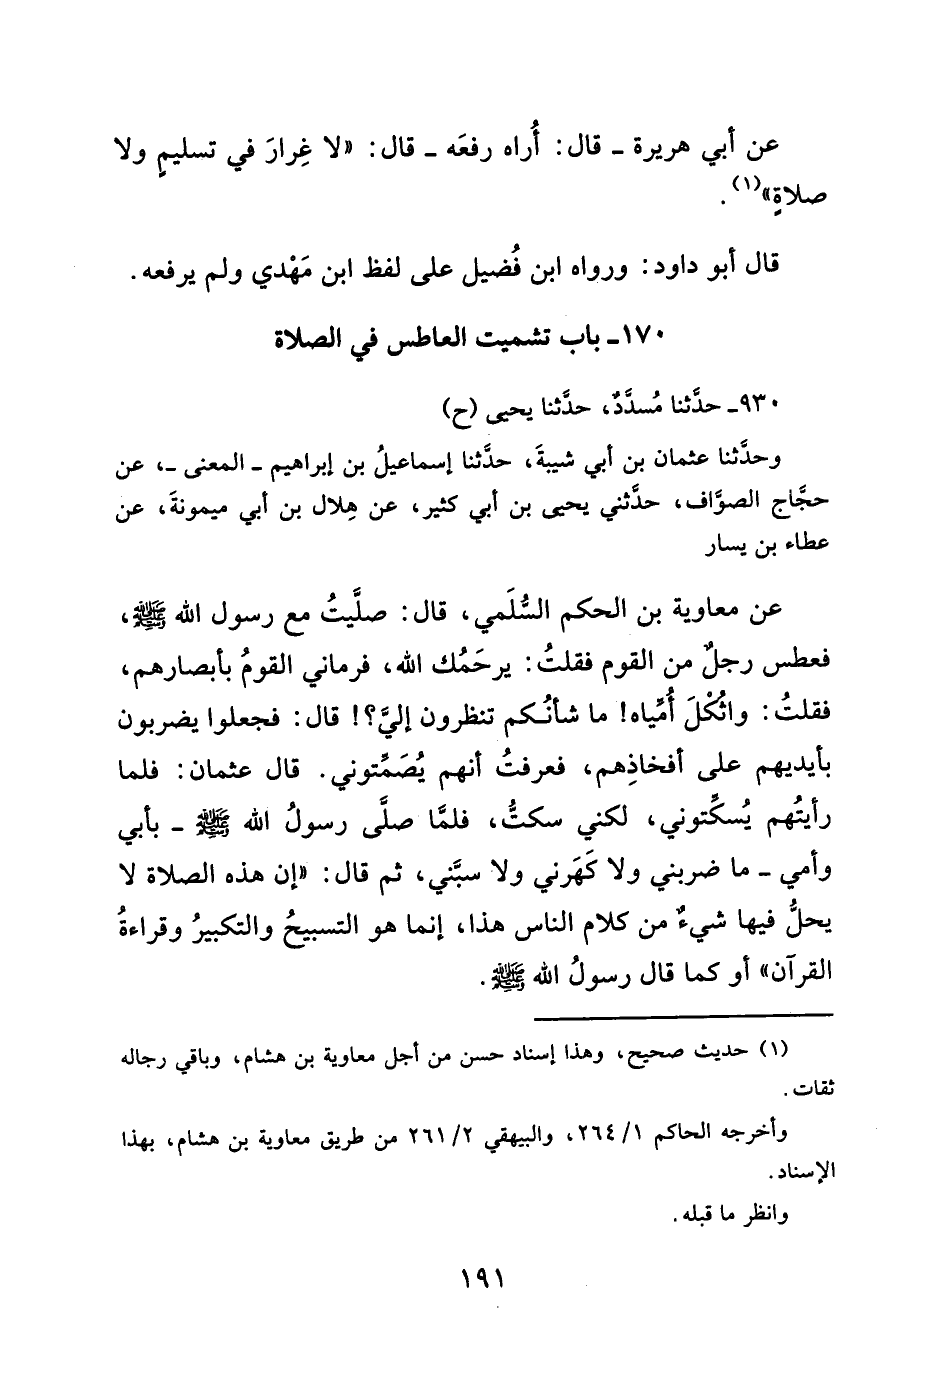 عن أبي هريرة ـ قال: أُراه رفعَه ـ قال: «لا غِرارَ في تسليمٍ ولا
صلاةٍ»(١).
قال أبو داود: ورواه ابن فُضيل على لفظ ابن مَهْدي ولم يرفعه.
١٧٠ـ باب تشميت العاطس في الصلاة
٩٣٠ـ حدَّثنا مُسدَّدٌ، حدَّثنا يحيى (ح)
وحدَّثنا عثمان بن أبي شيبةَ، حدَّثنا إسماعيلُ بن إبراهيم ـ المعنى ـ، عن
حجَّاج الصوَّاف، حدَّثني يحيى بن أبي كثير، عن هِلال بن أبي ميمونةَ، عن
عطاء بن يسار
عن معاوية بن الحكم السُّلَمي، قال: صلَّيتُ مع رسول الله ﷺ،
فعطس رجلٌ من القوم فقلتُ: يرحَمُك الله، فرماني القومُ بأبصارهم،
فقلتُ: واثُكْلَ أُمِّياه! ما شأنُكم تنظرون إليَّ؟! قال: فجعلوا يضربون
بأيديهم على أفخاذِهم، فعرفتُ أنهم يُصَمِّتوني. قال عثمان: فلما
رأيتُهم يُسكِّتوني، لكني سكتُّ، فلمَّا صلَّى رسولُ الله ﷺ ـ بأبي
وأمي ـ ما ضربني ولا كَهَرني ولا سبَّني، ثم قال: «إن هذه الصلاة لا
يحلُّ فيها شيءٌ من كلام الناس هذا، إنما هو التسبيحُ والتكبيرُ وقراءةُ
القرآن» أو كما قال رسولُ الله ﷺ.
(١) حديث صحيح، وهذا إسناد حسن من أجل معاوية بن هشام، وباقي رجاله
ثقات.
وأخرجه الحاكم ١/ ٢٦٤، والبيهقي ٢/ ٢٦١ من طريق معاوية بن هشام، بهذا
الإسناد.
وانظر ما قبله.
١٩١